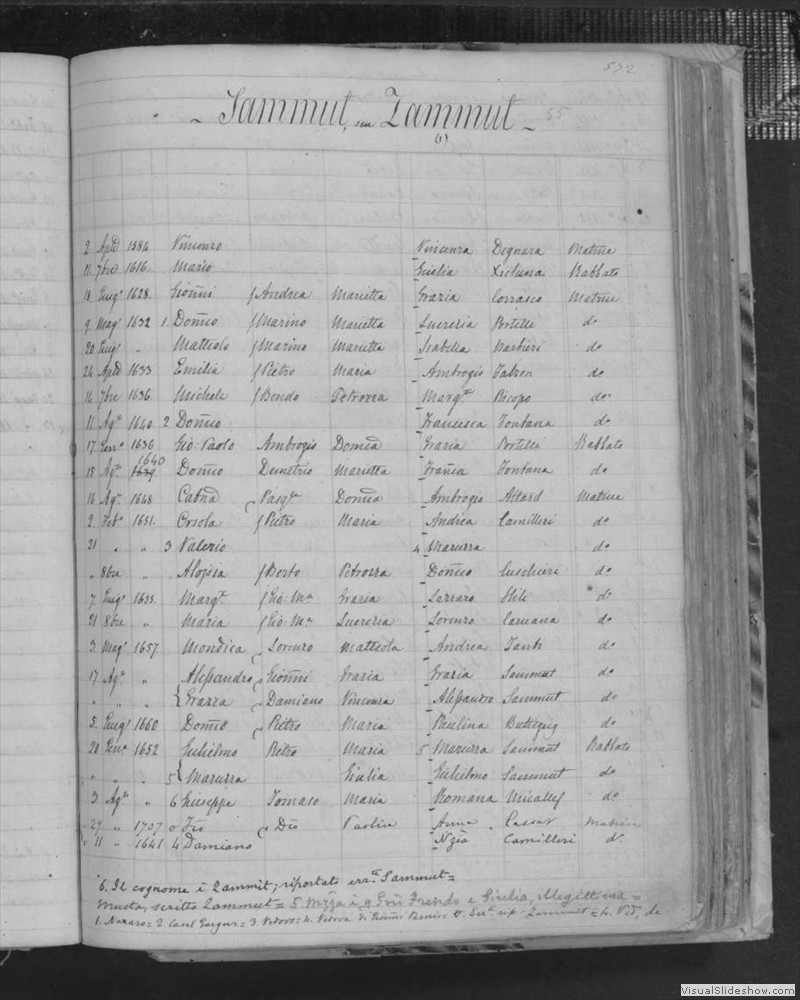 572
- Sammut, seu Zammut - 55
(1)
2 Aple 1584 Vincenzo Vincenza Degnara Matrice
11 7bre 1616 Mario Giulia Xicluna Rabbato
18 Giug° 1628 Gioñni f Andrea Marietta Grazia Corrasco Matrice
9 Mag° 1632 1. Domco f Marino Marietta Lucrezia Portelli do
20 Giug° " Matteolo f Marino Marietta Isabella Barbieri do
24 Aple 1633 Emilia f Pietro Maria Ambrogio do
14 7bre 1636 Michele f Bendo Petrozza Margta do
11 Aga 1640 2 Domco Francesca Fontana do
17 Genº 1636 Gio: Paolo Ambrogio Domca Grazia Portelli Rabbato
1640
15 Aga 1639 Domco Demetrio Marietta Franca Fontana do
16 Aga 1648 Catna Pasqle Domca Ambrogio Attard Matrice
2 Febº 1651. Orsola f Pietro Maria Andrea Camilleri do
21 " " 3 Valerio 4 Maruzza do
" 8bre " Aloisia f Berto Petrozza Domco Cuschieri do
7 Giug° 1655. Margta f Gio: Ma Grazia Lazzaro Hili do
21 8bre " Maria f Gio: Ma Lucrezia Lorenzo Caruana do
3 Mag° 1657 Mondica Lorenzo Matteola Andrea do
17 Aga " Alessandro Gioñni Grazia Grazia Sammut do
" " " { Grazia Damiano Vincenza Alessandro Sammut do
5 Giug° 1660 Domco Pietro Maria Paulina Buttigieg do
20 Genº 1652 Gulielmo Pietro Maria 5 Maruzza Sammut Rabbato
" " " 5 { Maruzza Giulia Gulielmo Sammut do
3 Aga " 6 Giuseppe Tomaso Maria Romana Micallef do
29 " 1707 Paolica Anna Cassar Matrice
11 " 1641 4 Damiano Camilleri do
6. Il cognome è Zammit; riportato Sammut =
scritto Zammut = 5 Frendo e Giulia, illegittima =
1. Nazaro = 2. Casal Gargur = 3. Vedovo = 4. Vedova di Zammut = 4. de
VisualSlideshow.com